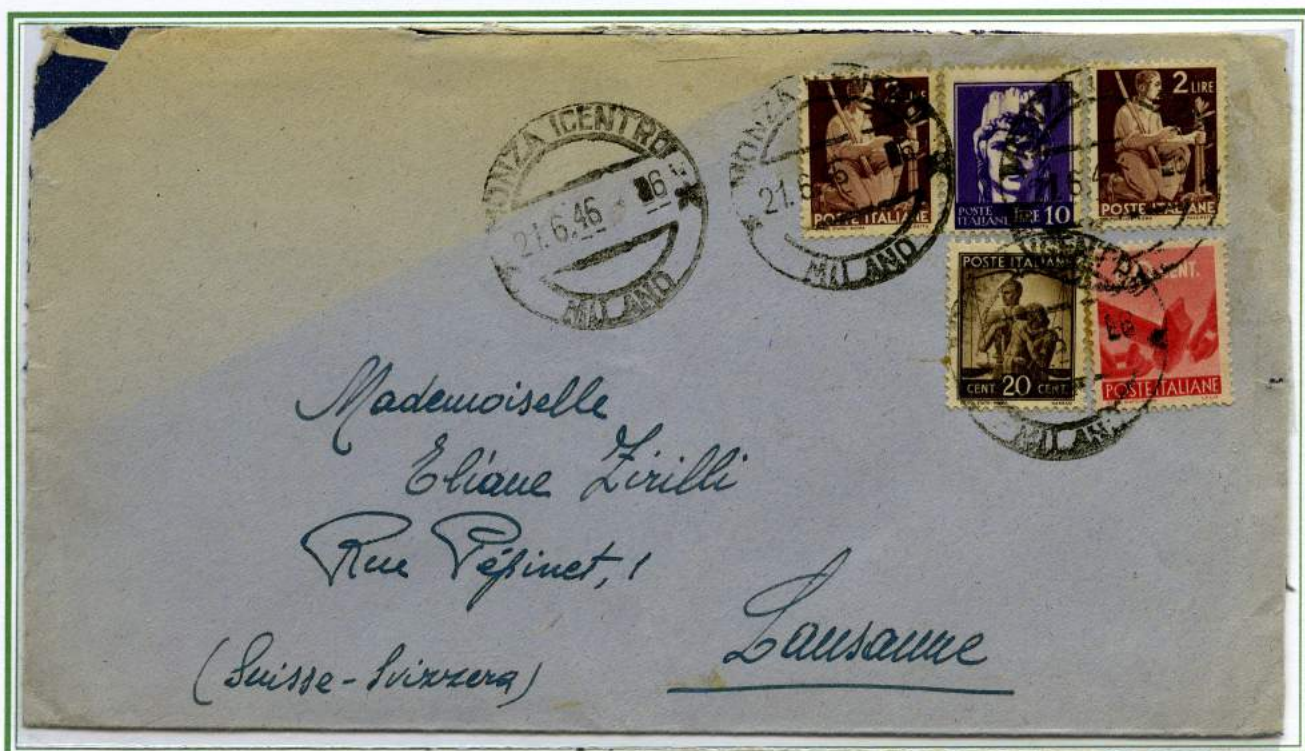 MONZA (CENTRO)
21.6.46
MILANO
MONZA
21.6.46
MILANO
POSTE ITALIANE
POSTE ITALIANE LIRE 10
2 LIRE
POSTE ITALIANE
POSTE ITALIANE
CENT 20 CENT
CENT.
POSTE ITALIANE
MILANO
Mademoiselle
Eliane Zirilli
Rue Pépinet, 1
Lausanne
(Suisse-Svizzera)